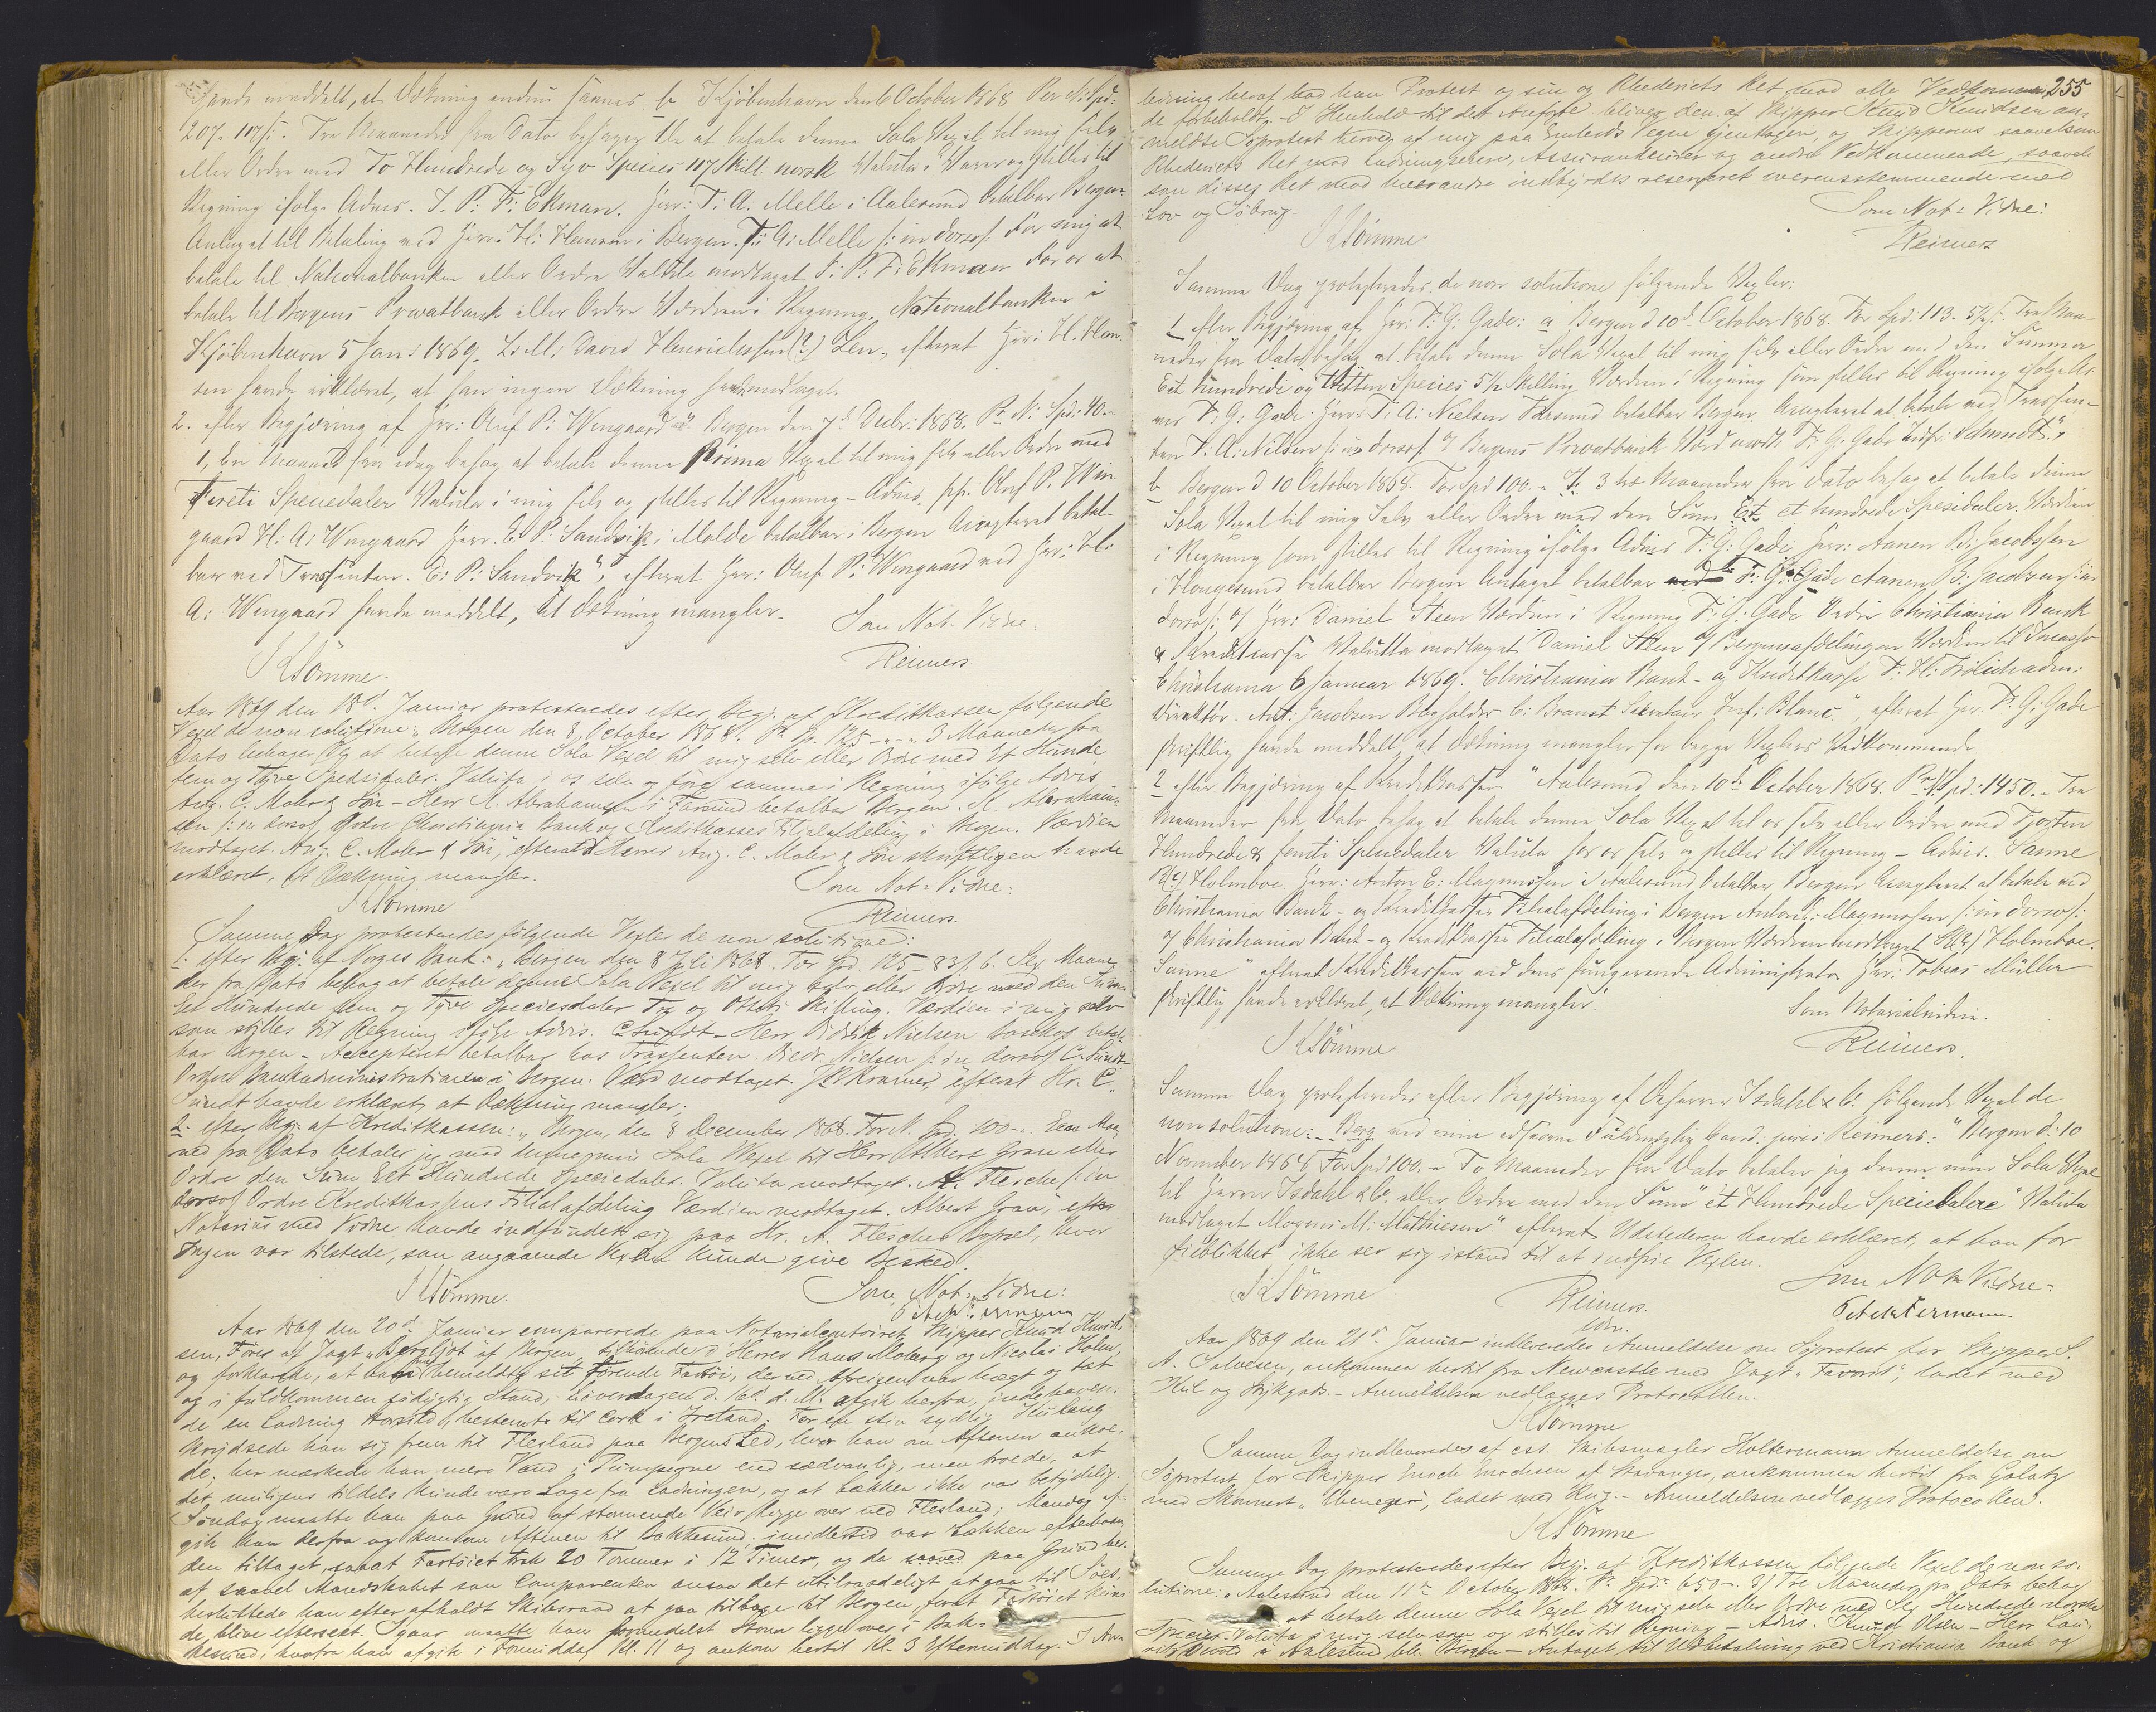 havde meddelt, at Dækning endnu savnes b Kjöbenhavn den 6 October 1868 Per N: Spd:
207. 117 s. Tre Maaneder fra Dato behager De at betale denne Sola Vexel til mig selv
eller Ordre med To Hundrede og Syv Species 117 Skill. norsk Valuta i Varer og stilles til
Regning ifölge Advis. J. P. F. Ekman. Herr: T: A. Melle i Aalesund betalbar Bergen
Antaget til Betaling ved Herr H: Hansen i Bergen. T: A: Melle /: in dorso /: For mig at
betale til Nationalbanken eller Ordre Valuta modtaget J: P: F: Ekman For os at
betale til Bergens Privatbank eller Ordre Værdien i Regning. Nationalbanken i
Kjöbenhavn 5 Jan: 1869. David Henrichsen (?) Lev., efterat Herr: H. Han
sen havde erklæret, at han ingen Dækning havde modtaget.
2. efter Begjæring af Herr: Oluf P: Wingaard "Bergen den 7d Decbr: 1868. Pr N: Spd: 40.-
1, En Maaned fra idag behag at betale denne Prima Vexel til mig selv eller Ordre med
Fireti Speciedaler Valuta i mig selv og stilles til Regning - Advis. ppr. Oluf P. Win
gaard H: A: Wingaard Herr. E. P. Sandvik i Molde betalbar i Bergen Accepteret betal-
bar ved Trassenten. E: P: Sandvik", efterat Herr: Oluf P: Wingaard ved Herr: H:
A: Wingaard havde meddelt, at Dækning mangler.
Som Not. Vidne.
K Sömme.
Reimers.
Aar 1869 den 18d. Januar protesteredes efter Begj. af Kreditkassen følgende
Vexel de non solutione: "Bergen den 8 October 1868. Pr Sp. 125 - " - " 3 Maaneder fra
Dato behager De at betale denne Sola Vexel til mig selv eller Ordre med Et Hunde
fem og Tyve Spedsidaler. Valuta i os selv og före samme i Regning ifölge Advis
Aug. C. Mohr & Sön - Herr A. Abrahamsen i Farsund betalbar Bergen. A. Abraham-
sen /: in dorso /: Ordre Christiania Bank og Kreditkasses Filialafdeling i Bergen. Værdien
modtaget. Aug. C. Mohr & Sön", efterat Herrer Aug. C. Mohr & Sön skriftligen havde
erklæret, at Dækning mangler.
Som Not: Vidne:
K Sömme
Reimers.
Samme Dag protesteredes følgende Vexler de non solutione:
1. efter Begj. af Norges Bank: "Bergen den 8 Juli 1868. For Spd. 125 - 83 s. 6. Sex Maane-
der fra Dato behag at betale denne Sola Vexel til mig selv eller Ordre med den Summ
Et Hundrede fem og Tyve Speciesdaler Tre og Otteti Skilling. Værdien i mig selv
som stilles til Regning ifölge Advis. C Sundt - Herr Didrik Nielsen Toskog betal-
bar Bergen - Accepteret betalbar hos Trassenten. Didr. Nielsen /: in dorso /: C. Sundt
Ordre Bankadministrationen i Bergen. Værd modtaget. J R Kramer, efterat Hr. C.
Sundt havde erklæret, at Dækning mangler;
2. efter Begj. af Kreditkassen: "Bergen, den 8 December 1868. For N. Spd. 100 -. Een Maa
ned fra Dato betaler jeg mod denne min Sola Vexel til Herr Albert Gran eller
Ordre den Sum Eet Hundrede Speciedaler. Valuta modtaget. A. Flesche /: in
dorso /: Ordre Kreditkassens Filialafdeling Værdien modtaget. Albert Gran", efter
Notarius med Vidne havde indfundet sig paa Hr. A. Flesches Bopæl, hvor
Ingen var tilstede, som angaaende Vexlen kunde give Besked.
Som Not: Vidne:
K Sömme.
Aar 1869 den 20d. Januar comparerede paa Notarialcontoiret Skipper Knud Knud-
sen, Förer af Jagt "Bergljot" af Bergen, tilhörende Herrer Hans Moberg og Nicolai Holm,
og forklarede, at han med bemeldte sit Förende Fartöi, der ved Afreisen var tægt og tæt
og i fuldkommen södygtig Stand, Löverdagen d. 16d. d. M. afgik herfra, indehaven-
de en Ladning Storsild, bestemt til Cork i Ireland. For en stiv sydlig Kuling
krydsede han sig frem til Flesland paa Bergens Led, hvor han om Aftenen ankre-
de; her mærkede han mere Vand i Pumperne end sædvanlig, men troede, at
det muligens tildels kunde være Lage fra Ladningen, og at Lækken ikke var betydelig.
Söndag maatte han paa Grund af stormende Veir ligge over ved Flesland; Mandag af-
gik han derfra og kom om Aftenen til Bakkesund; imidlertid var Lækken efterhaan-
den tiltaget, saaat Fartöiet trak 20 Tommer i 12 Timer, og da saavel paa Grund her-
af saavel Mandskabet som Comparenten ansaa det utilraadeligt at gaa til Söes,
besluttede han efter afholdt Skibsraad at gaa tilbage til Bergen, forat Fartöiet kun-
de blive efterseet. Igaar maatte han formedelst Storm ligge over i Bak-
kesund, hvorfra han afgik i Formiddag Kl. 11 og ankom hertil Kl. 3 Eftermiddag. I An-
255
ledning heraf tog han Protest og sin og Rhederiets Ret mod alle Vedkommen-
de forbeholdt. - I Henhold til det Anførte bliver den af Skipper Knud Knudsen an-
meldte Söprotest herved af mig paa Embeds Vegne gjentagen, og Skipperens saavelsom
Rhederiets Ret mod Ladningseiere, Assurandeurer og andre Vedkommende, saavel
som disses Ret mod hverandre indbyrdes reserveret overensstemmende med
Lov og Söbrug.
Som Not: Vidne:
K Sömme
Reimers
Samme Dag protesteredes de non solutione følgende Vexler:
1 efter Begjæring af Herr: F: G: Gade: a Bergen d 10d October 1868. For Spd: 113. 5½ s. Tre Maa-
neder fra Dato behag at betale denne Sola Vexel til mig selv eller Ordre med den Summa
Eet hundrede og Tretten Species 5½ Skilling Værdien i Regning som stilles til Regning ifölge Ad
vis F: G: Gade Herr: T: A: Nielsen Farsund betalbar Bergen. Accepteret at betale ved Trassen-
ten T: A: Nilsen /: in dorso /: o/ Bergens Privatbank Værd modt. F: G: Gade
b Bergen d 10 October 1868. For Spd 100. - 3 tre Maaneder fra Dato behag at betale denne
Sola Vexel til mig Selv eller Ordre med den Sum et hundrede Spesidaler. Værdien
i Regning som stilles til Regning ifölge Advis F: G: Gade Herr: Aanen B: Jacobsen
i Haugesund betalbar Bergen Antaget betalbar ved F: G: Gade Aanen B: Jacobsen /: in
dorso /: o/ Herr: Daniel Steen Værdien i Regning F: G. Gade Ordre Christiania Bank
& Kreditcasse Valutta modtaget Daniel Steen o/ Bergensafdelingen Værdien til Incasso
Christiania 6 Januar 1869. Christiania Bank- og Kreditkasse F. H: Frölich adm:
Direktör. Ant: Jacobsen Bogholder C: Brandt Secretair Inf: Blanc", efterat Herr F. G: Gade
skriftlig havde meddelt, at Dækning mangler for begge Vexlers Vedkommende.
2 efter Begjæring af Kreditkassen "Aalesund, den 10de October 1868. Pr N Spd: 1450. - Tre
Maaneder fra Dato behag at betale denne Sola Vexel til os selv eller Ordre med Fjorten
Hundrede & femti Speciedaler Valuta for os selv og stilles til Regning - Advis. Sanne
& (?) Holmboe Herr: Anton E: Magnussen i Aalesund betalbar Bergen Accepteret at betale ved
Christiania Bank- og Kreditkasses Filialafdeling i Bergen Anton E: Magnussen /: in dorso /:
o/ Christiania Bank- og Kreditkasses Filialafdeling i Bergen Værdien modtaget (?) Holmboe.
Sanne" efterat Kreditkassen ved dens fungerende Administrator Herr: Tobias Müller
skriftlig havde erklæret, at Dækning mangler.
Som Notarialvidne.
K Sömme
Reimers.
Samme Dag protesteredes efter Begjæring af DHerrer Isdahl & Co: følgende Vexel de
non solutione: "Bergen d: 10
November 1868. For Spd 100. - To Maaneder fra Dato betaler jeg denne min Sola Vexel
til Herrer Isdahl & Co. eller Ordre med den Sum "et Hundrede Speciedalere" Valuta
modtaget Mogens M: Mathiesen." efterat Udstederen havde erklæret, at han for
Öieblikket ikke ser sig istand til at indfrie Vexlen.
Som Not: Vidne:
K Sömme
Reimers.
Aar 1869 den 21d Januar indleveredes Anmeldelse om Söprotest for Skipper S.
A. Calvesen, ankommen hertil fra Newcastle med Jagt "Favorit", ladet med
Kul og Stykgods. - Anmeldelsen vedlægges Protocollen.
K Sömme
Samme Dag indleveredes af cst. Skibsmægler Holtermann Anmeldelse om
Söprotest for Skipper Enoch Enochsen af Stavanger, ankommen hertil fra Galatz
med Skonnert "Ebenezer", ladet med Rug. - Anmeldelsen vedlægges Protocollen.
K Sömme
Samme Dag protesteredes efter Begj. af Kreditkassen følgende Vexel de non so-
lutione: "Aalesund den 11te October 1868. Pr. Spd: 650 -. 3/ Tre Maaneder fra Dato behag
at betale denne Sola Vexel til mig selv eller Ordre med Sex Hundrede norske
Species. Valuta i mig selv som og stilles til Regning - Advis. Knud Olsen - Herr Lau-
rits i Aalesund btb. Bergen - Antaget til Udbetaling ved Kristiania Bank og